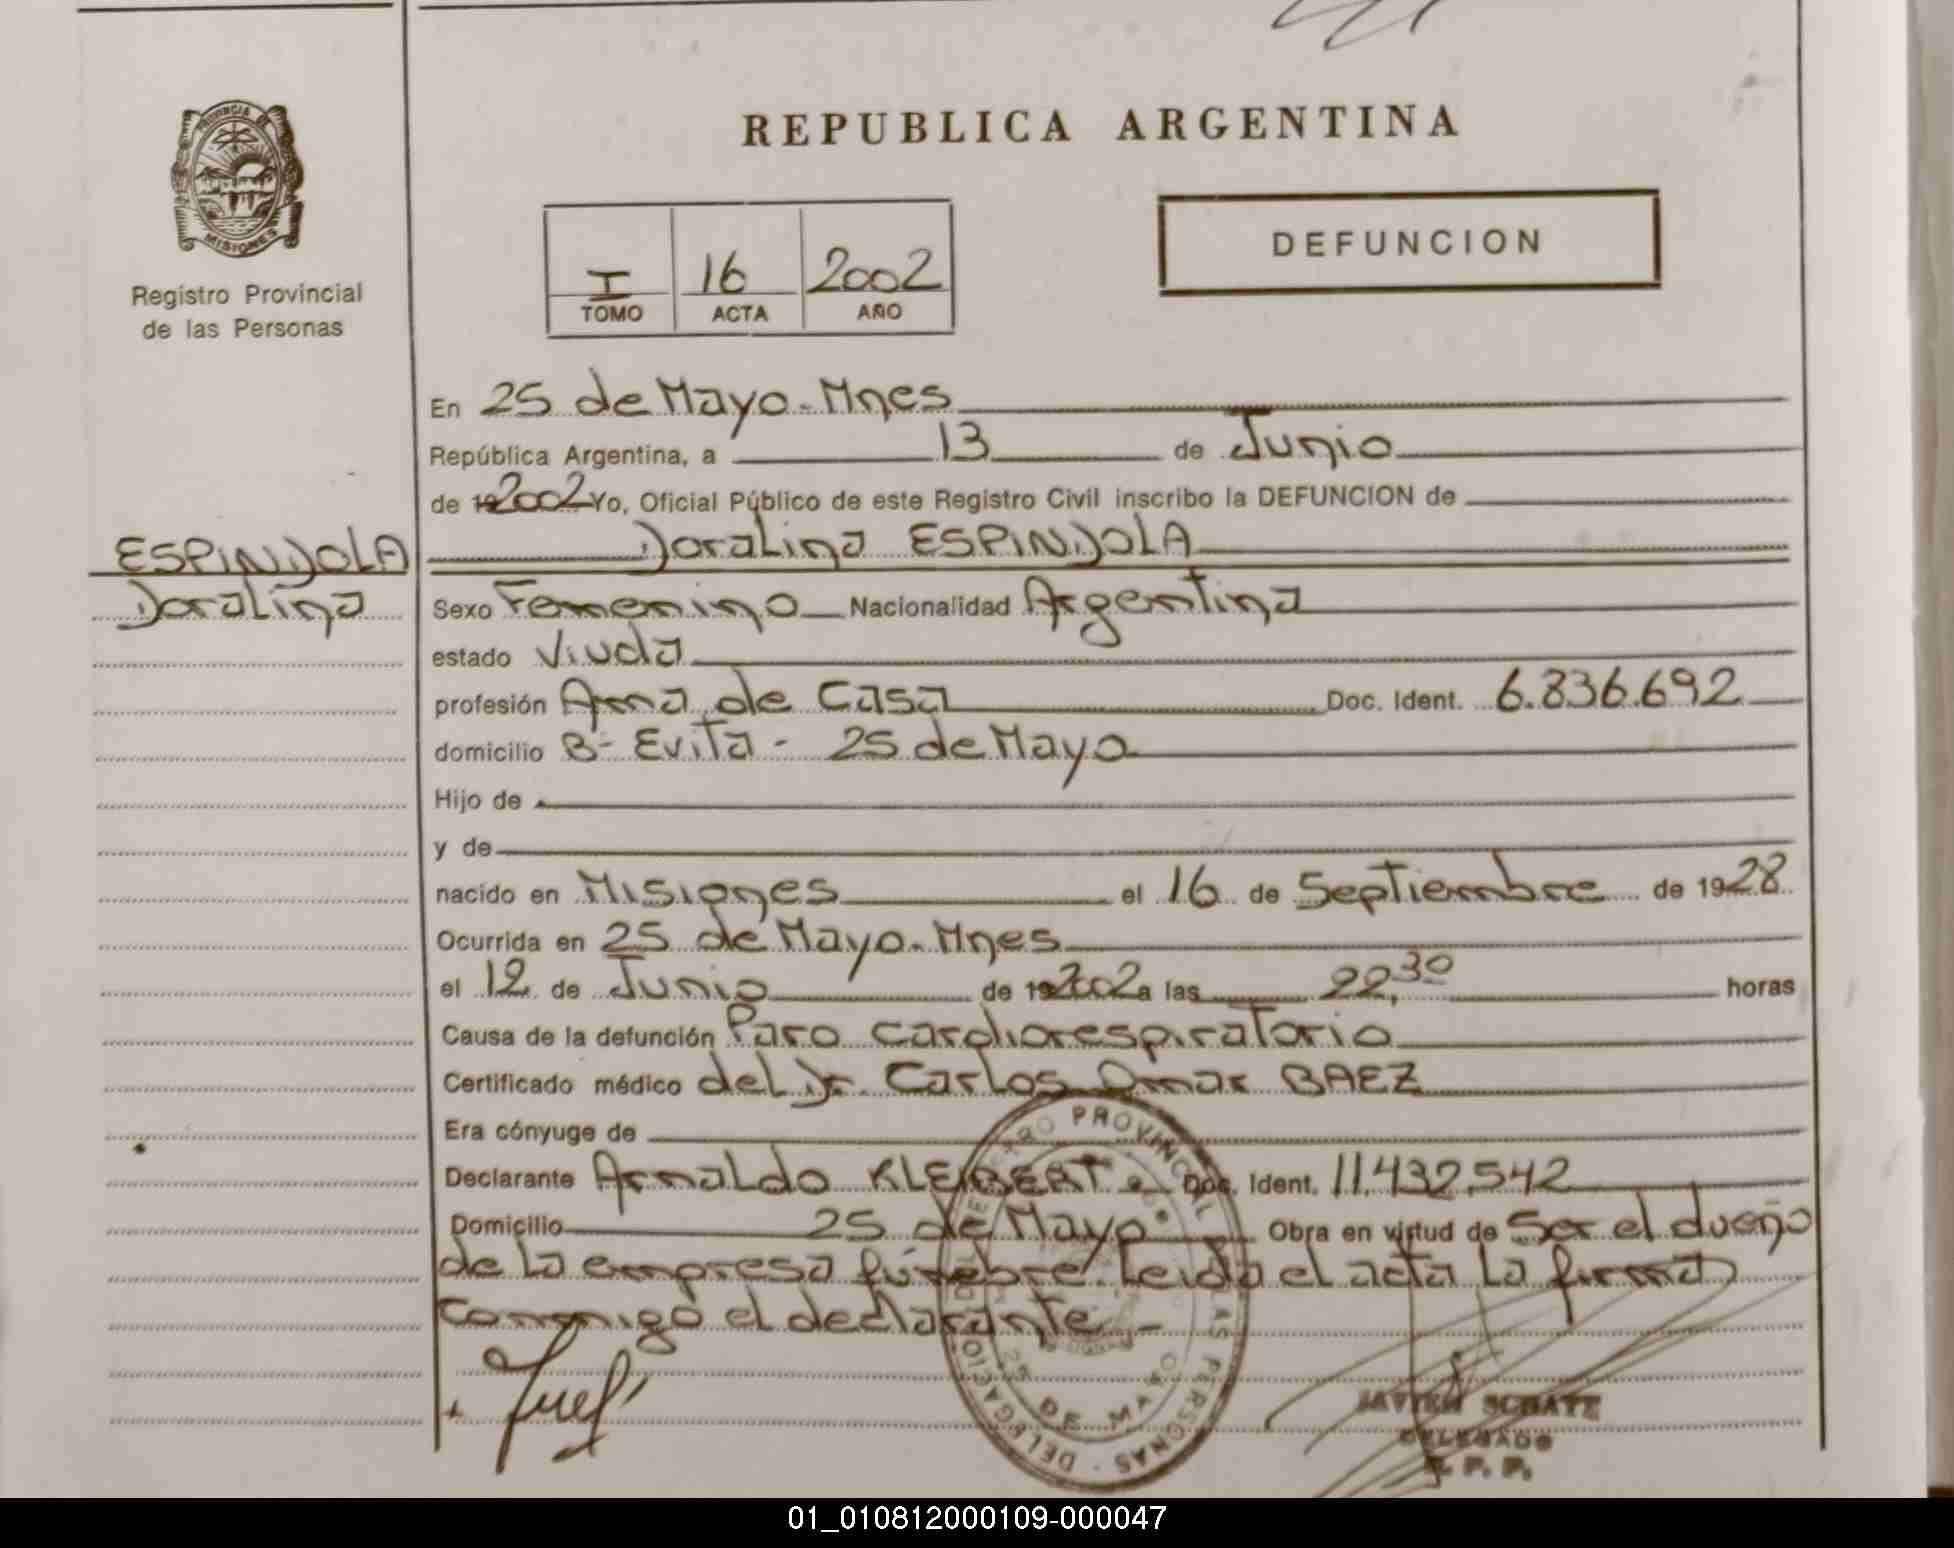 REPUBLICA ARGENTINA
PROVINCIA DE
MISIONES
Registro Provincial
de las Personas
DEFUNCION
I 16 2002
TOMO ACTA AÑO
En 25 de Mayo. Mnes
República Argentina, a 13 de Junio
de 192002 Yo, Oficial Público de este Registro Civil inscribo la DEFUNCION de
ESPINDOLA
Doralina
Doralina ESPINDOLA
Sexo Femenino Nacionalidad Argentina
estado Viuda
profesión Ama de Casa Doc. Ident. 6.836.692
domicilio B- Evita - 25 de Mayo
Hijo de
y de
nacido en Misiones el 16 de Septiembre de 1928
Ocurrida en 25 de Mayo. Mnes
el 12 de Junio de 192002 a las 22,30 horas
Causa de la defunción Paro cardiorespiratorio
Certificado médico del Dr. Carlos Omar BAEZ
Era cónyuge de
Declarante Arnaldo KLEIBERT Doc. Ident. 11.432.542
Domicilio 25 de Mayo Obra en virtud de Ser el dueño
de la empresa fúnebre. Leida el acta la firma
conmigo el declarante.-
REGISTRO PROVINCIAL DE LAS PERSONAS - DELEGACION
25 DE MAYO
JAVIER SCHATZ
DELEGADO
R. P. P.
01_010812000109-000047